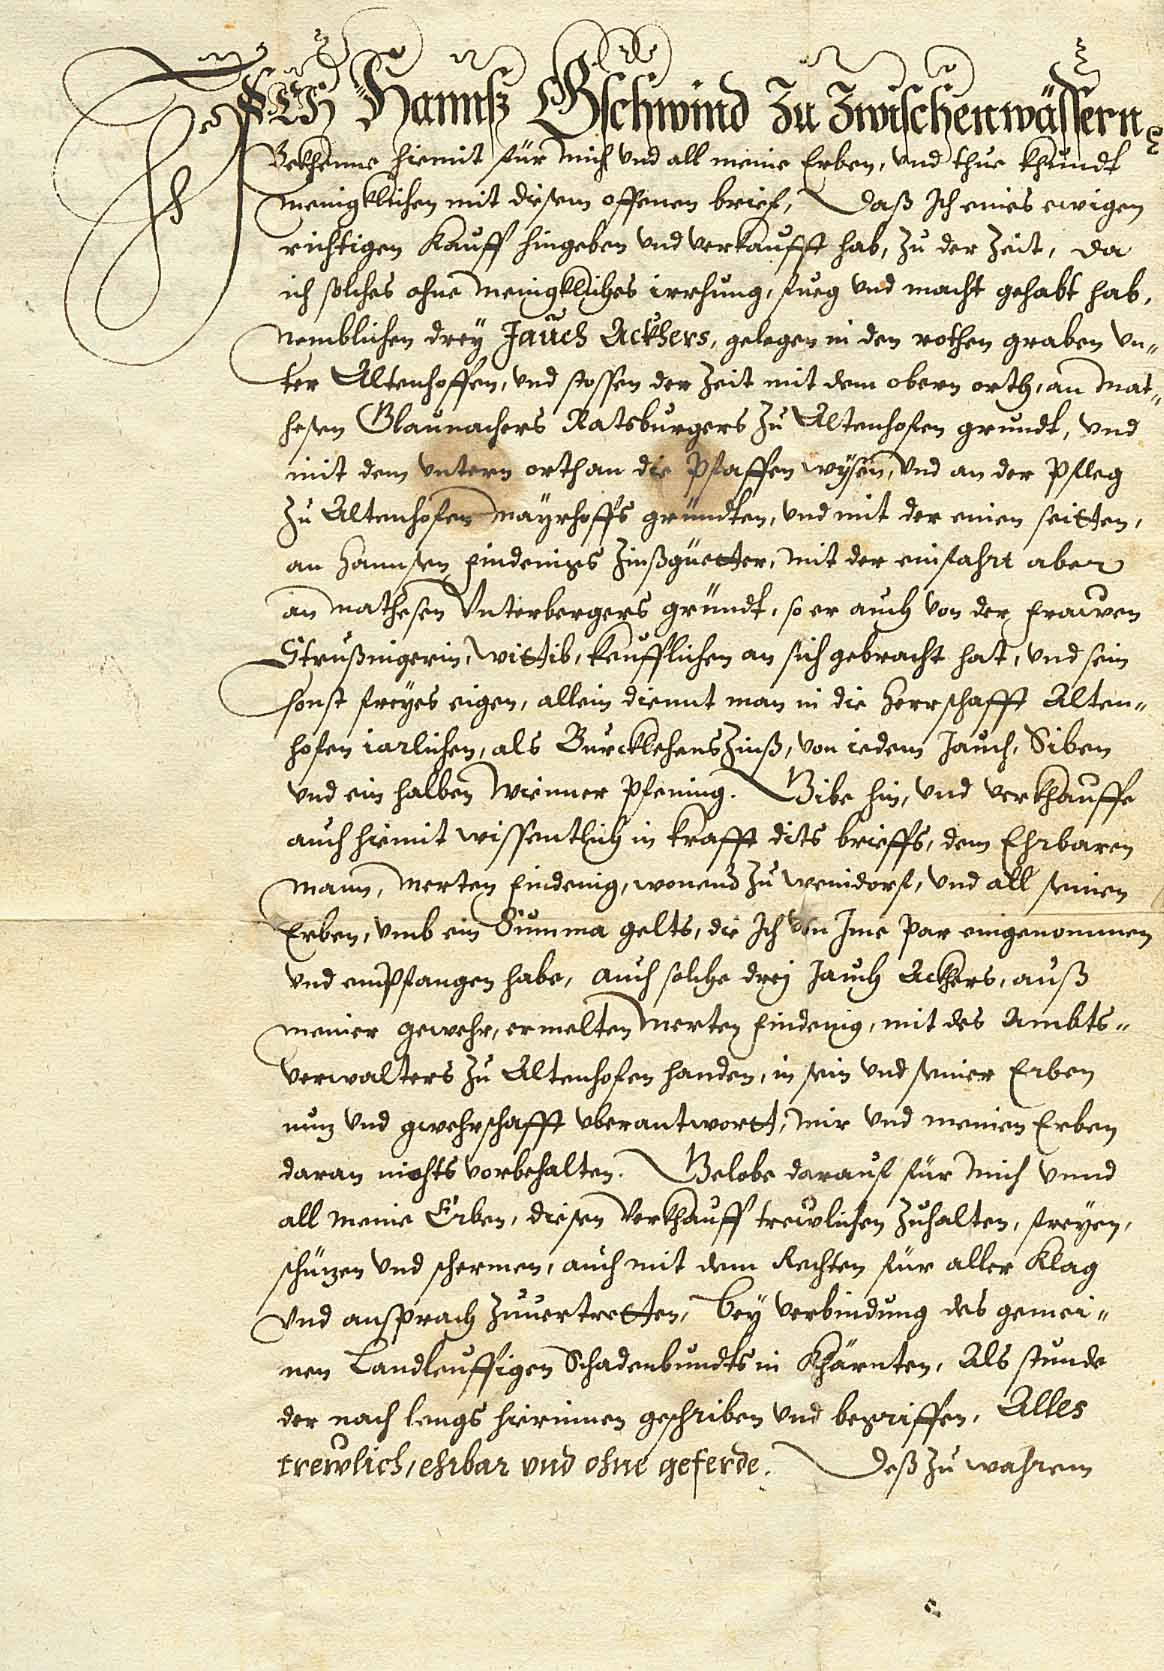 ICH Hannß Gschwind Zu Zwischenwässern
Bekhenne hiemit für mich vnd all meine Erben, vnd thue khundt
meingklichen mit disem offenen brief, Daß Ich eines ewigen
richtigen Kauff hingeben vnd verkaufft hab, zu der Zeit, da
ich solches ohne meingkliches irrhung, fueg vnd macht gehabt hab,
Nemblichen drey Jauch Ackhers, gelegen in den rothen graben vn„
ter Altenhoffen, vnd stossen der Zeit mit dem obern orth, an Mat„
hesen Glaunachers Ratsburgers zu Altenhofen grundt, vnd
mit dem vntern orth an die Pfaffen wysen, vnd an der Pfleg
zu Altenhofen Mayrhoffs gründten, vnd mit der einen seitten,
an Hannsen Eindenigs Zinßgüetter, mit der einfahrt aber
an Mathesen Vnterbergers gründt, so er auch von der Frawen
Straußnigerin, wittib, keufflichen an sich gebracht hat, vnd sein
sonst freyes eigen, allein dient man in die Herrschafft Alten„
hofen iarlichen, als BurcklehensZinß, von iedem Jauch, Siben
vnd ein halben Wienner Pfening. Gibe hin, vnd verkhauffe
auch hiemit wissentlich in krafft dits brieffs, dem Ehrbaren
Mann, Merten Eindenig, wonend zu Wenidorf, vnd all seinen
Erben, vmb ein Summa gelts, die Ich von Ime par eingenommen
vnd empfangen habe, auch solche drej Jauch Ackhers, auß
meiner gewehr, ermelten Merten Eindenig, mit des Ambts„
verwalters zu Altenhofen handen, in sein vnd seiner Erben
nuz vnd gwehrschafft vberantwortt, mir vnd meinen Erben
daran nichts vorbehalten. Gelobe darauf für mich vnnd
all meine Erben, disen Verkhauff trewlichen Zuhalten, freyen,
schüzen vnd schermen, auch mit dem Rechten für aller Klag
vnd ansprach Zuuertretten, bey verbindung des gemei„
nen Landleuffigen Schadenbundts in Khärnten, Als stunde
der nach lengs hierinnen geschriben vnd begriffen, Alles
trewlich, ehrbar vnd ohne geferde. Deß zu wahrem